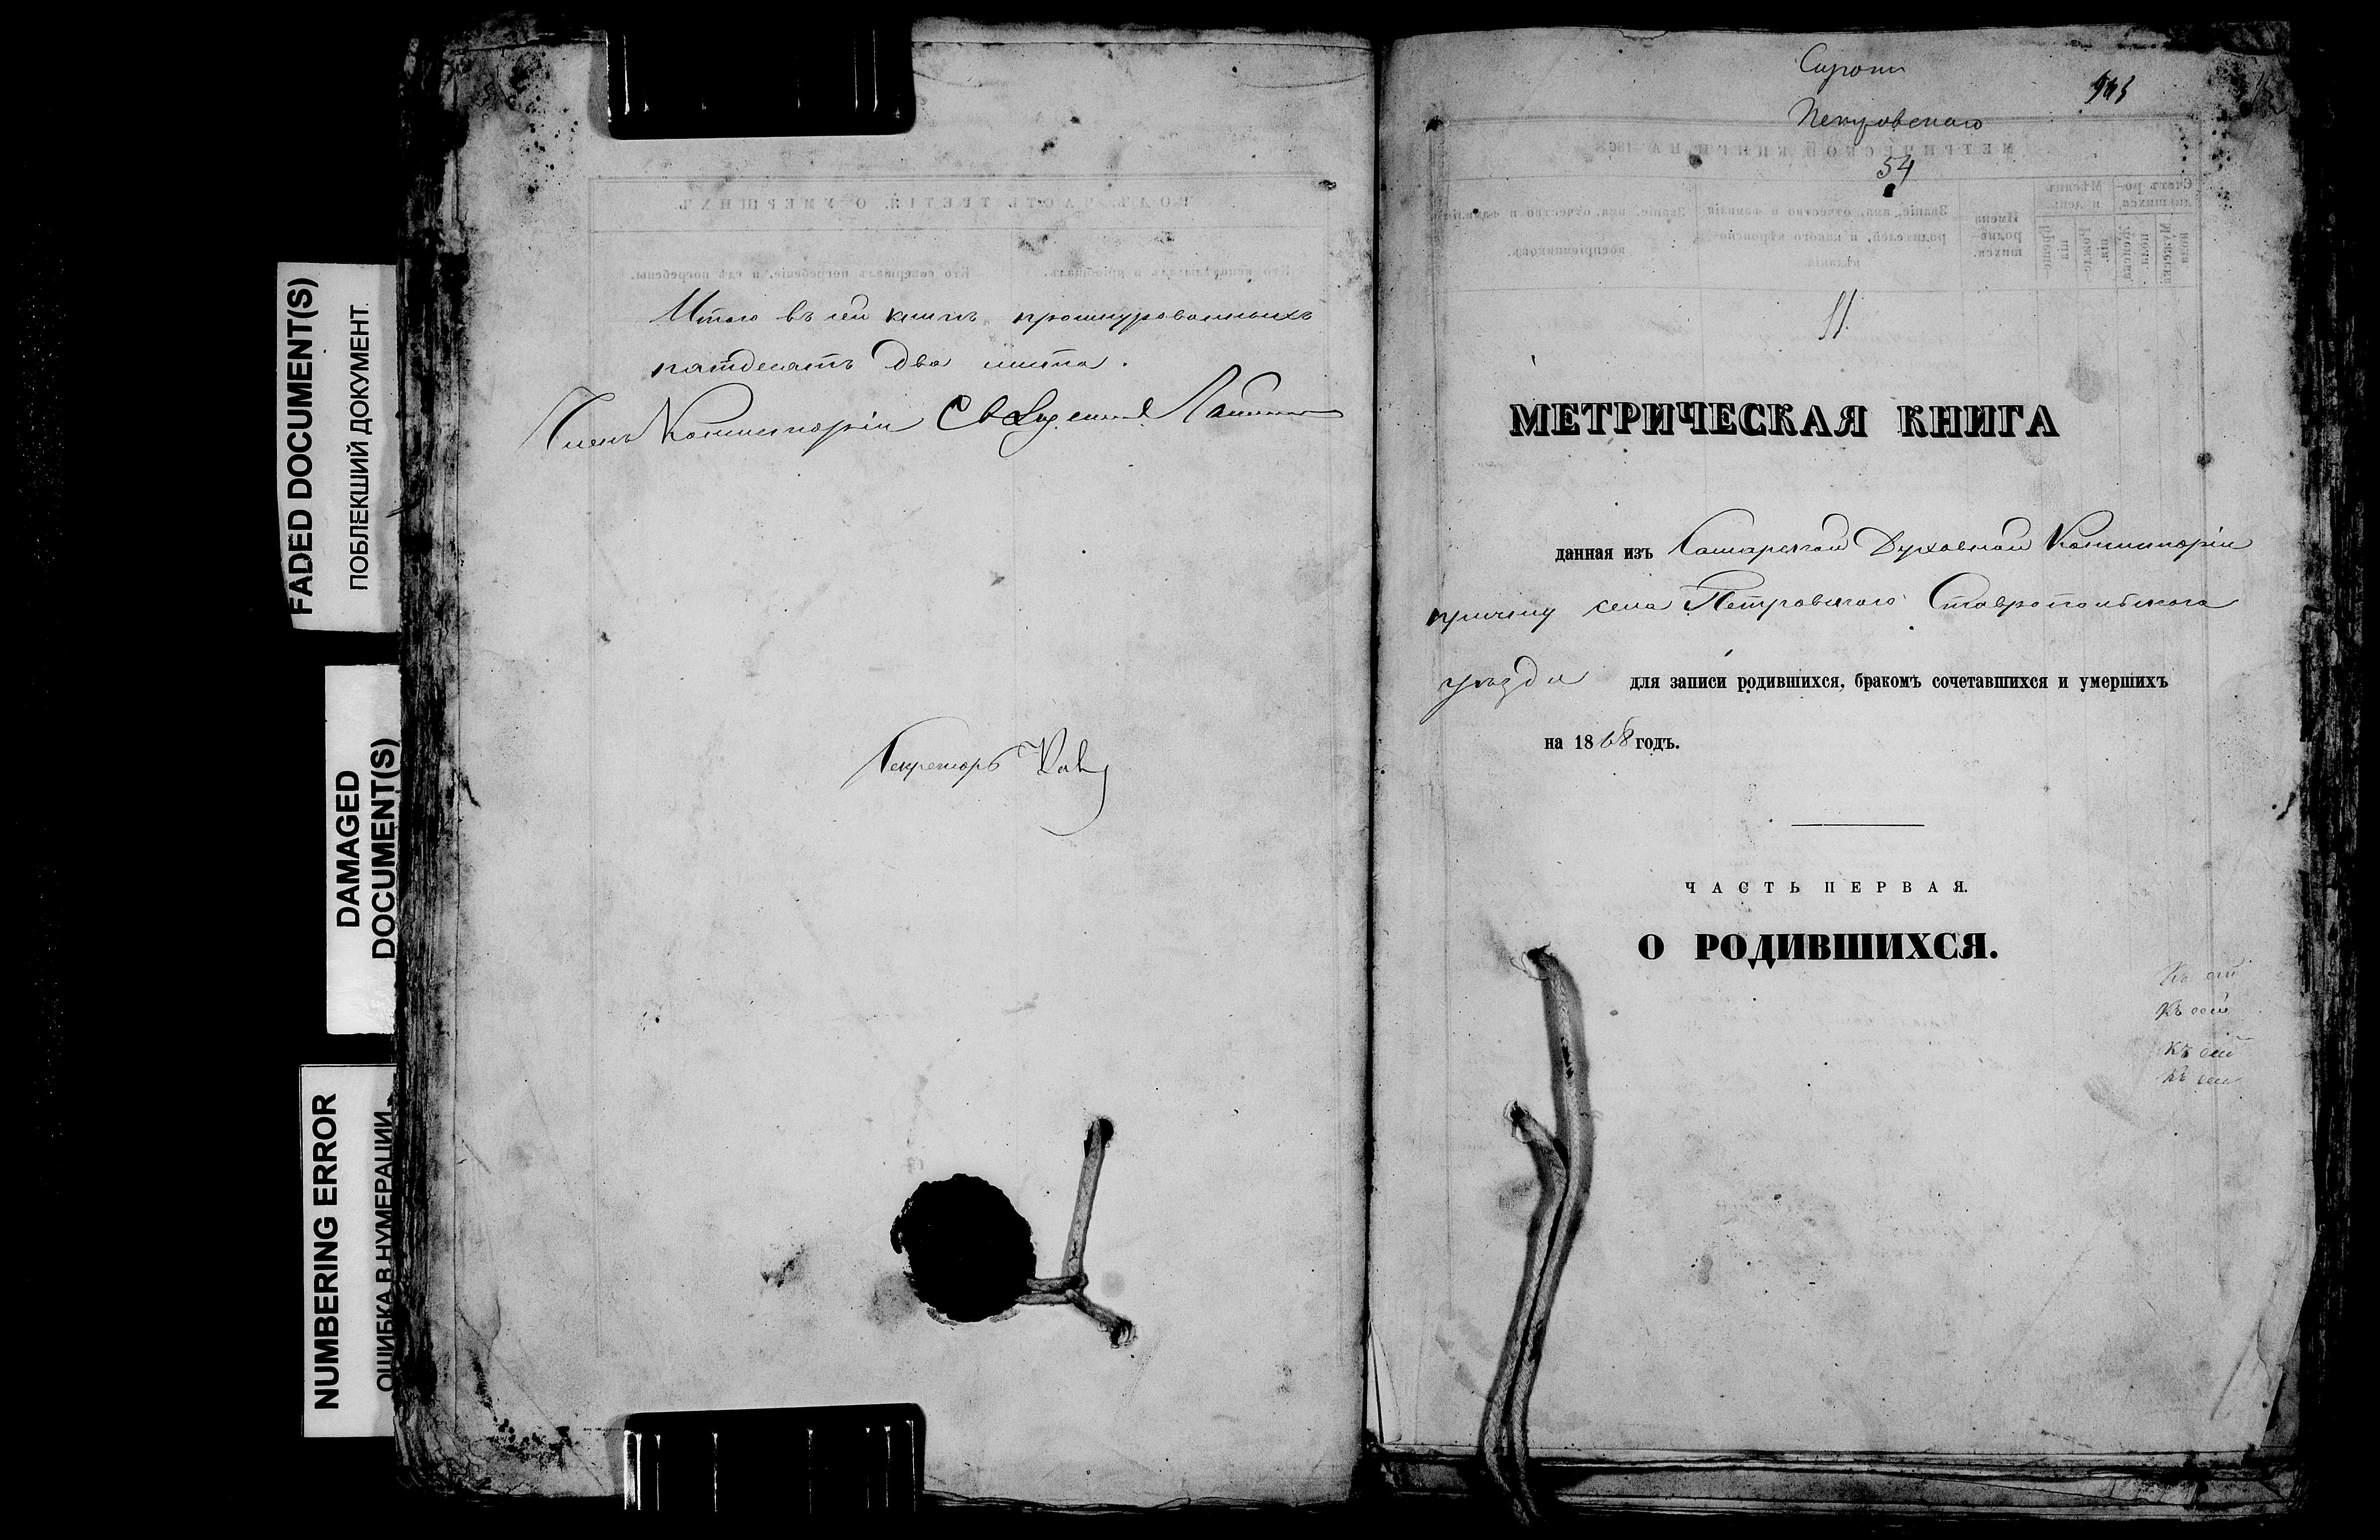 FADED DOCUMENT(S)
ПОБЛЕКШИЙ ДОКУМЕНТ
DAMAGED
DOCUMENT(S)
NUMBERING ERROR
ОШИБКА В НУМЕРАЦИИ
Итого въ сей книгѣ прошнурованныхъ
пятдесятъ два листа.
Членъ Консисторіи Священникъ
Секретарь
Петровскаго
54
МЕТРИЧЕСКАЯ КНИГА
данная изъ Самарской Духовной Консисторіи
причту села Петровскаго Ставропольскаго
уѣзда для записи родившихся, бракомъ сочетавшихся и умершихъ
на 1868 годъ.
ЧАСТЬ ПЕРВАЯ.
О РОДИВШИХСЯ.
Къ сей
Къ сей
Къ сей
Къ сей